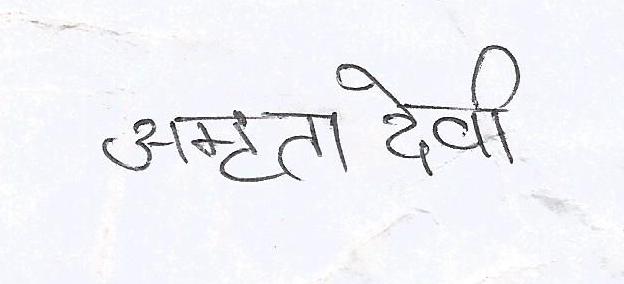 अमृता देवी